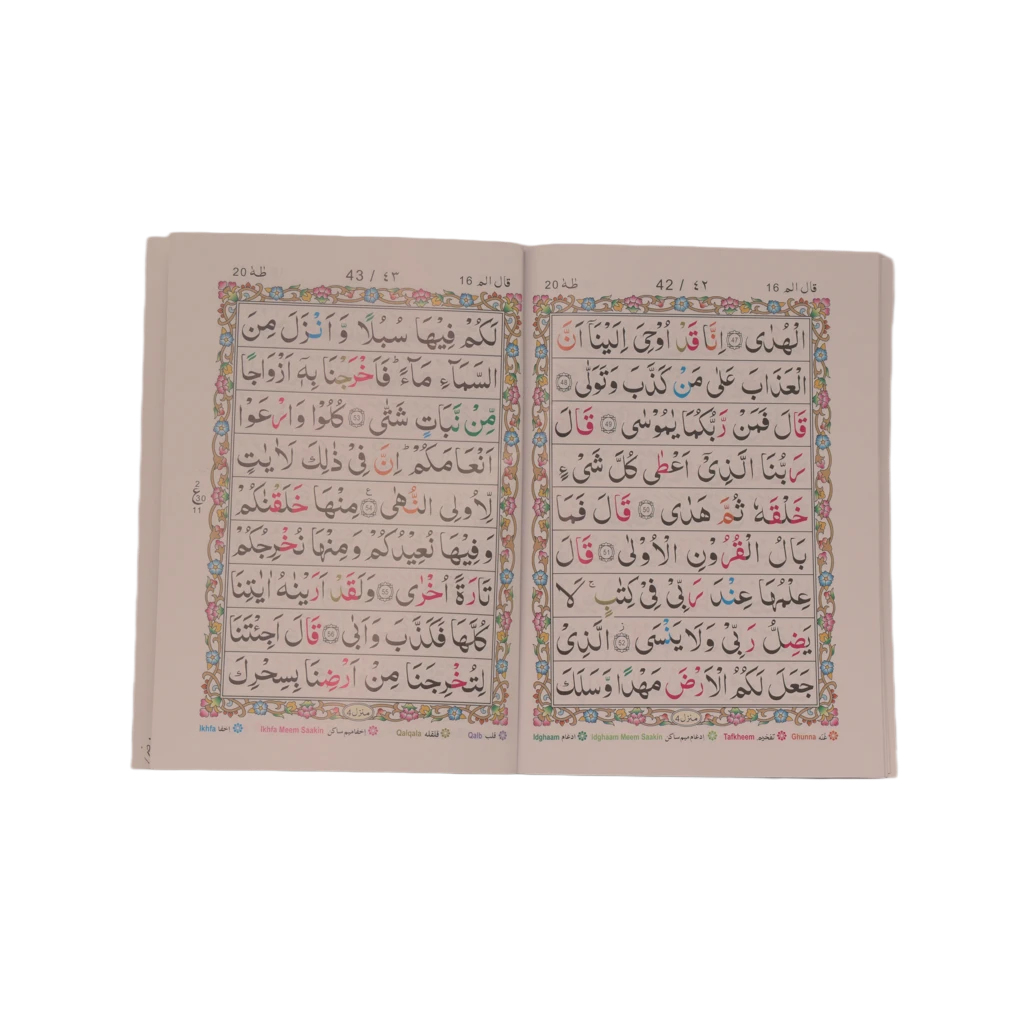 قال الم 16
42 / ٤٢
طٰهٰ 20
الْهُدٰى ۝47 اِنَّا قَدْ اُوْحِیَ اِلَیْنَاۤ اَنَّ
الْعَذَابَ عَلٰی مَنْ كَذَّبَ وَتَوَلّٰی ۝48
قَالَ فَمَنْ رَّبُّكُمَا یٰمُوْسٰی ۝49 قَالَ
رَبُّنَا الَّذِیْۤ اَعْطٰی كُلَّ شَیْءٍ
خَلْقَهٗ ثُمَّ هَدٰی ۝50 قَالَ فَمَا
بَالُ الْقُرُوْنِ الْاُوْلٰی ۝51 قَالَ
عِلْمُهَا عِنْدَ رَبِّیْ فِیْ كِتٰبٍ ۚ لَا
یَضِلُّ رَبِّیْ وَلَا یَنْسَی ۝52 الَّذِیْ
جَعَلَ لَكُمُ الْاَرْضَ مَهْدًا وَّسَلَكَ
منزل 4
Ghunna غنه Tafkheem تفخيم Idghaam Meem Saakin ادغام ميم ساكن Idghaam ادغام
قال الم 16
43 / ٤٣
طٰهٰ 20
لَكُمْ فِیْهَا سُبُلًا وَّاَنْزَلَ مِنَ
السَّمَآءِ مَآءً ؕ فَاَخْرَجْنَا بِهٖۤ اَزْوَاجًا
مِّنْ نَّبَاتٍ شَتّٰی ۝53 كُلُوْا وَارْعَوْا
اَنْعَامَكُمْ ؕ اِنَّ فِیْ ذٰلِكَ لَاٰیٰتٍ
لِّاُولِی النُّهٰی ۝54 مِنْهَا خَلَقْنٰكُمْ
وَفِیْهَا نُعِیْدُكُمْ وَمِنْهَا نُخْرِجُكُمْ
تَارَةً اُخْرٰی ۝55 وَلَقَدْ اَرَیْنٰهُ اٰیٰتِنَا
كُلَّهَا فَكَذَّبَ وَاَبٰی ۝56 قَالَ اَجِئْتَنَا
لِتُخْرِجَنَا مِنْ اَرْضِنَا بِسِحْرِكَ
2
ع 30
11
منزل 4
Qalb قلب Qalqala قلقله Ikhfa Meem Saakin اخفا ميم ساكن Ikhfa اخفا